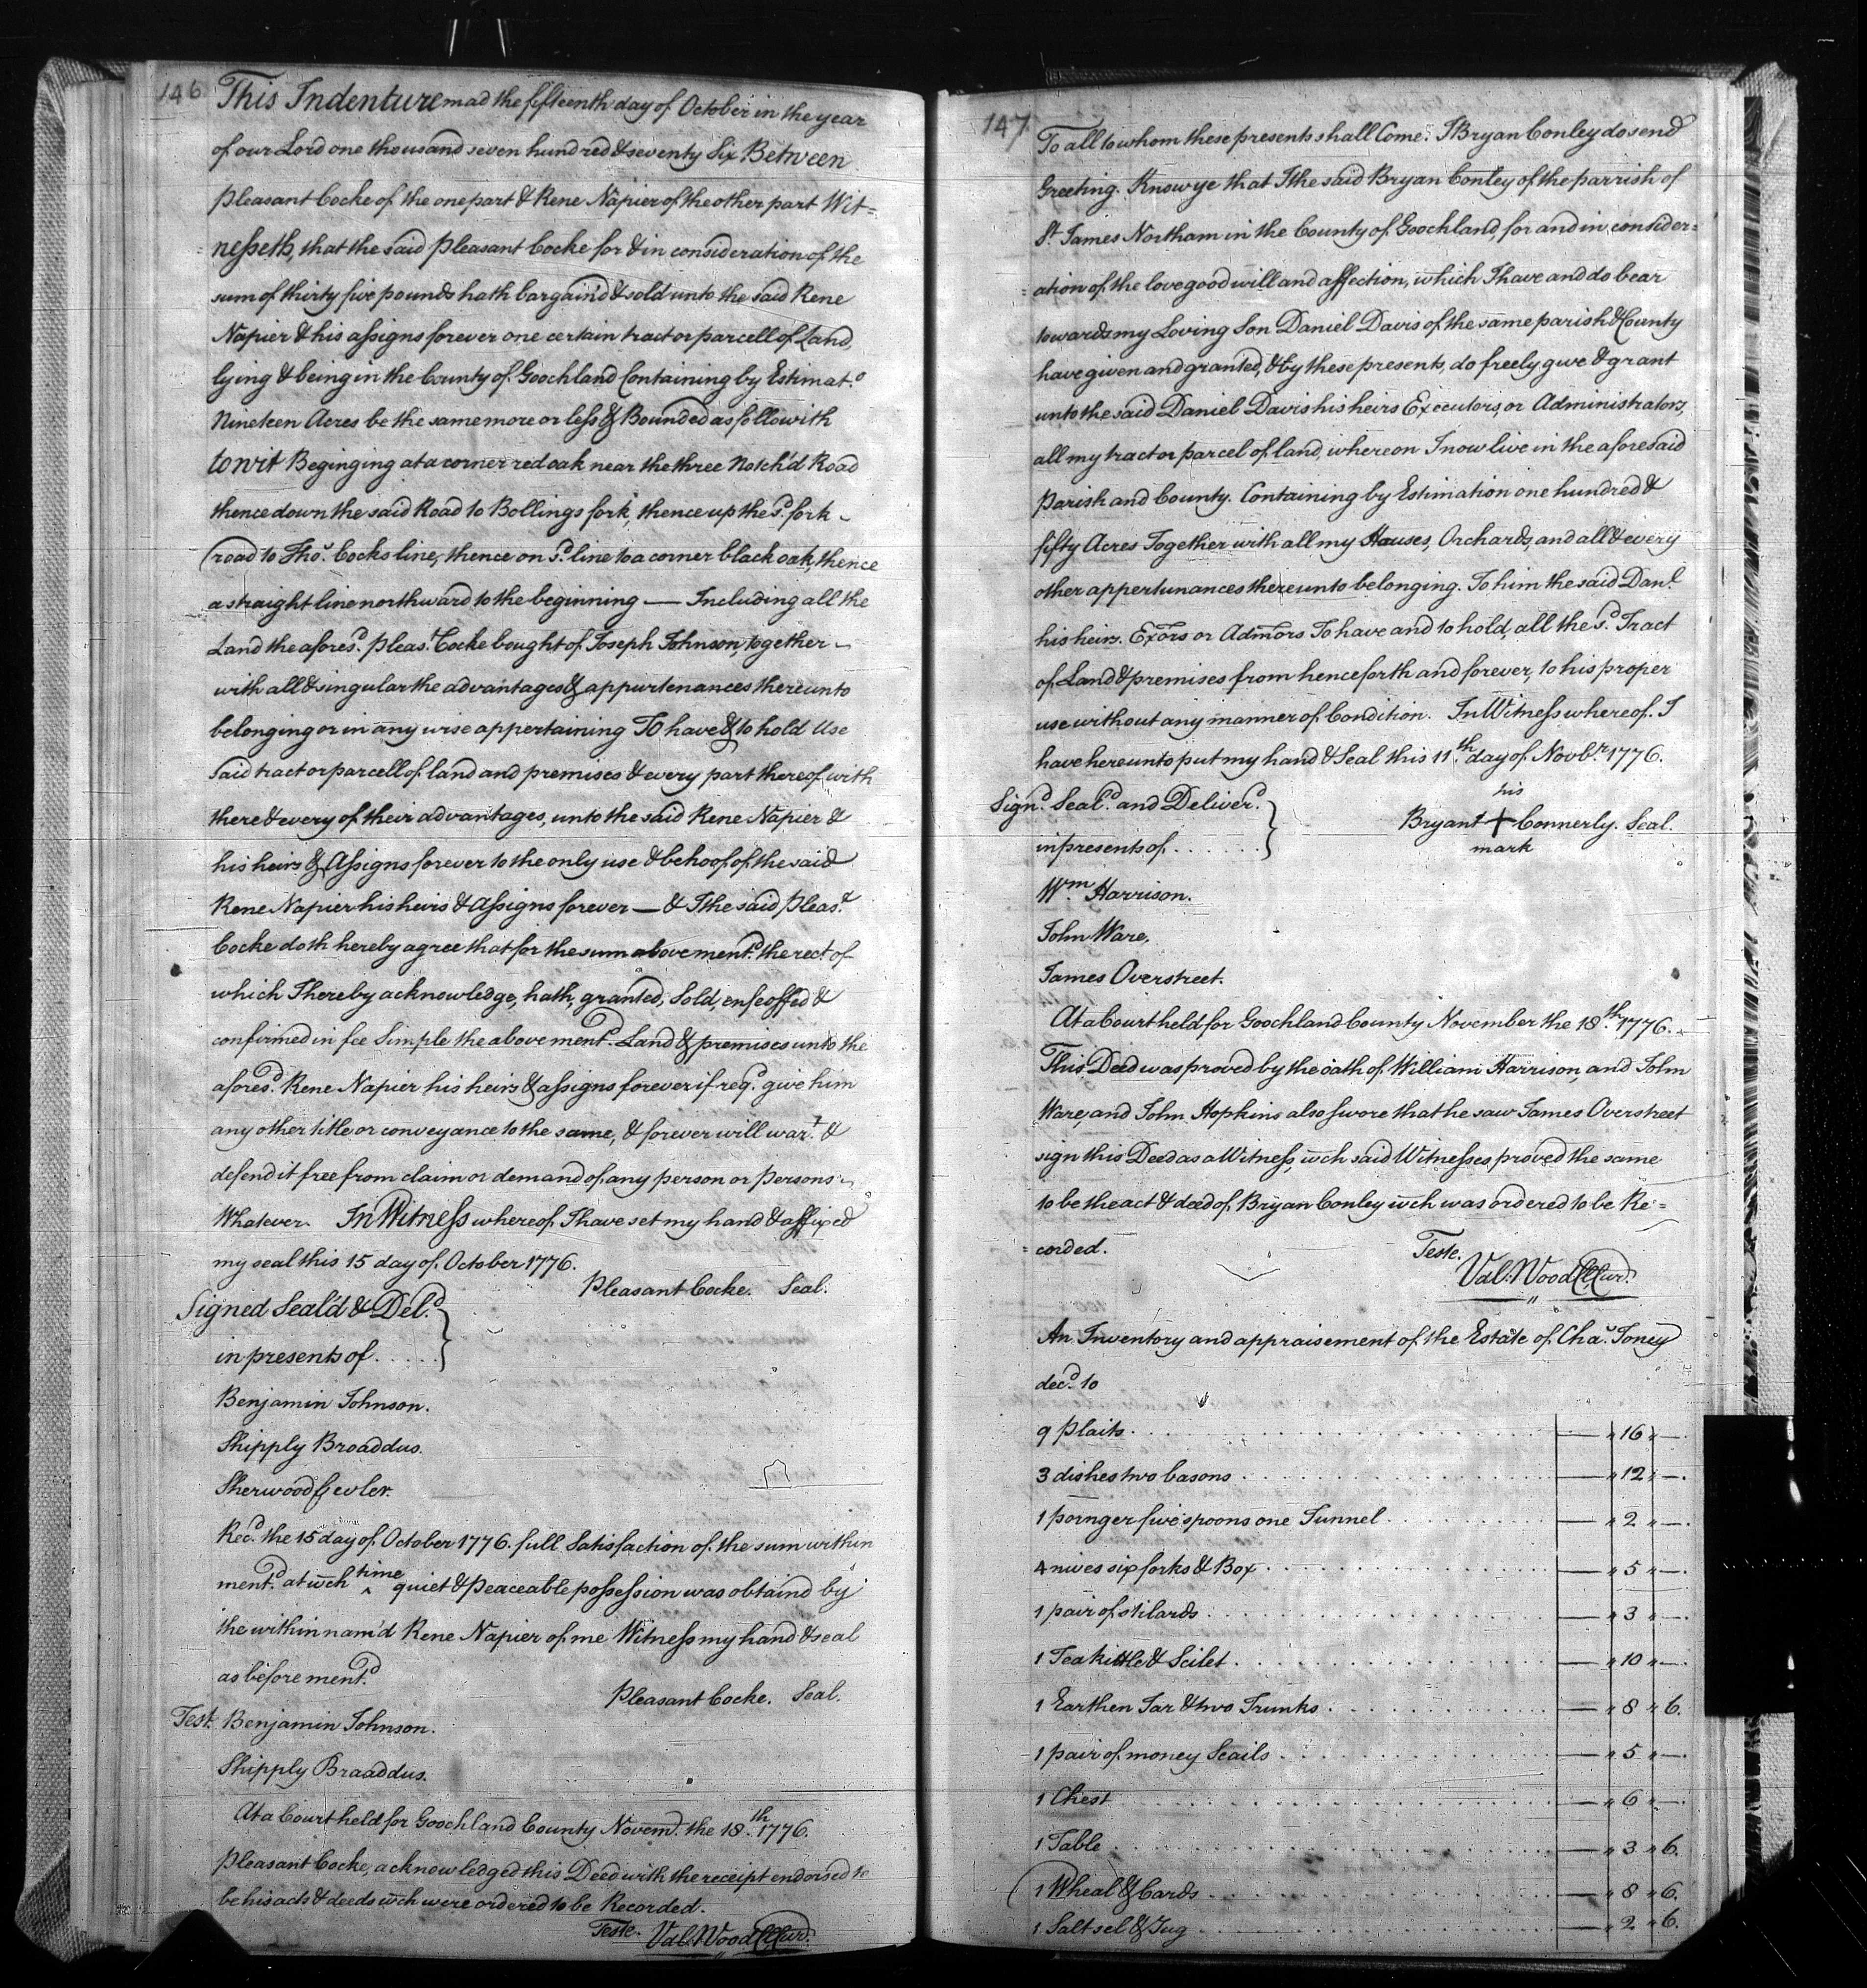 146
This Indenture mad the fifteenth day of October in the year
of our Lord one thousand seven hundred & seventy Six Between
Pleasant Cocke of the one part & Rene Napier of the other part Wit=
=nesseth, that the said Pleasant Cocke for & in consideration of the
sum of thirty five pounds hath bargain'd & sold unto the said Rene
Napier & his assigns forever one certain tract or parcell of Land,
lying & being in the County of Goochland Containing by Estimat.o
Nineteen Acres be the same more or less & Bounded as followith
to wit Beginging at a corner red oak near the three Notch'd Road
thence down the said Road to Bollings fork, thence up the s.d fork
road to Tho.s Cocks line, thence on s.d line to a corner black oak, thence
a straight line northward to the beginning — Including all the
Land the afores.d Pleas.t Cocke bought of Joseph Johnson, together
with all & singular the advantages & appurtenances thereunto
belonging or in any wise appertaining To have & to hold Use
said tract or parcell of land and premises & every part thereof with
there & every of their advantages, unto the said Rene Napier &
his heirs & Assigns forever to the only use & behoof of the said
Rene Napier his heirs & Assigns forever — & I the said Pleas.t
Cocke doth hereby agree that for the sum above ment.d the rec.t of
which I hereby acknowledge, hath, granted, Sold, enfeoffed &
confirmed in fee Simple the above ment.d Land & premises unto the
afores.d Rene Napier his heirs & assigns forever if req.d give him
any other title or conveyance to the same, & forever will war.t &
defend it free from claim or demand of any person or persons
Whatever. In Witness whereof I have set my hand & affixed
my seal this 15 day of October 1776.
Pleasant Cocke. Seal.
Signed Seal'd & Del.d }
in presents of . . . . . }
Benjamin Johnson.
Shipply Broaddus.
Sherwood
Rec.d the 15 day of October 1776. full Satisfaction of the sum within
ment.d at wch time quiet & Peaceable possession was obtaind by
the within nam'd Rene Napier of me Witness my hand & seal
as before ment.d
Pleasant Cocke. Seal.
Test. Benjamin Johnson.
Shipply Braaddus.
At a Court held for Goochland County Novem.r the 18.th 1776.
Pleasant Cocke, acknowledged this Deed with the receipt endorsed to
be his acts & deeds wch were ordered to be Recorded.
Teste. Val. Wood Cl Cur.
147
To all to whom these presents shall Come. I Bryan Conley do send
Greeting. Know ye that I the said Bryan Conley of the parrish of
St. James Northam in the County of Goochland, for and in consider=
=ation of the love good will and affection, which I have and do bear
towards my Loving Son Daniel Davis of the same parish & County
have given and granted, & by these presents, do freely give & grant
unto the said Daniel Davis his heirs Executors, or Administrators,
all my tract or parcel of land, whereon I now live in the aforesaid
Parish and County. Containing by Estimation one hundred &
fifty Acres Together with all my Houses, Orchards, and all & every
other appertunances thereunto belonging. To him the said Dan.l
his heirs. Exors or Admors To have and to hold, all the s.d Tract
of Land & premises from henceforth and forever, to his proper
use without any manner of Condition. In Witness whereof. I
have hereunto put my hand & Seal this 11.th day of Novb.r 1776.
Sign.d Seal.d and Deliver.d }
in presents of . . . . . . }
his
Bryant + Connerly. Seal.
mark
Wm. Harrison.
John Ware.
James Overstreet.
At a Court held for Goochland County November the 18.th 1776.
This Deed was proved by the oath of William Harrison, and John
Ware, and John Hopkins also swore that he saw James Overstreet
sign this Deed as a Witness, wch said Witnesses proved the same
to be the act & deed of Bryan Conley wch was ordered to be Re=
=corded.
Teste.
Val. Wood Cl Cur.
An Inventory and appraisement of the Estate of Cha.s Toney
dec.d to
9 Plaits . . . — " 16 " —
3 dishes two basons . . . — " 12 " —
1 poringer five spoons one Tunnel . . . — " 2 " —
4 nives six forks & Box . . . — " 5 " —
1 pair of stilards . . . — " 3 " —
1 Tea kittle & Scilet . . . — " 10 " —
1 Earthen Jar & two Trunks . . . — " 8 " 6.
1 pair of money Scails . . . — " 5 " —
1 Chest . . . — " 6 " —
1 Table . . . — " 3 " 6.
1 Wheal & Cards . . . — " 8 " 6.
1 Salt sel & Jug . . . — " 2 " 6.